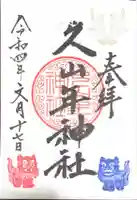 奉拝
久山年神社
令和四年六月十七日